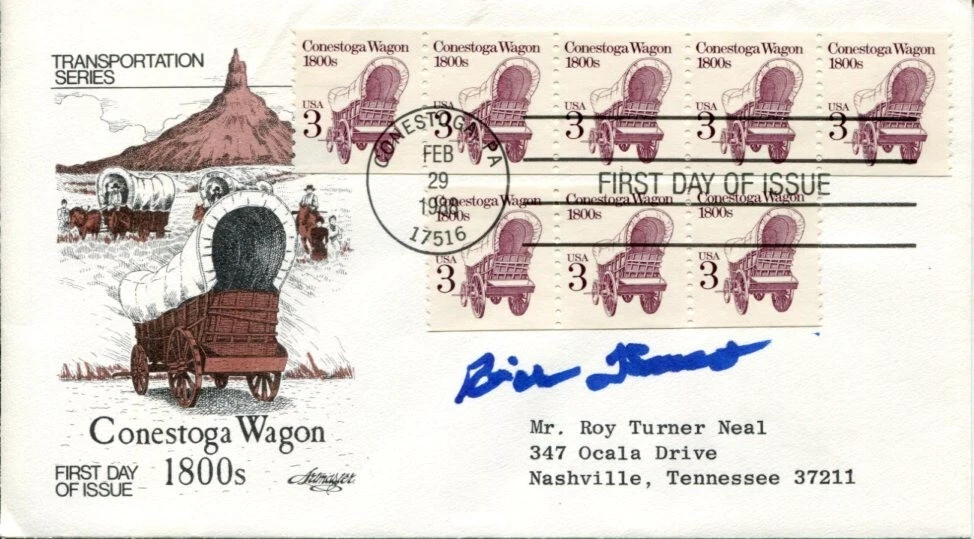 TRANSPORTATION
SERIES
Conestoga Wagon
1800s
USA
3
Conestoga Wagon
1800s
USA
3
Conestoga Wagon
1800s
USA
3
Conestoga Wagon
1800s
USA
3
Conestoga Wagon
1800s
USA
3
CONESTOGA, PA
FEB
29
1988
17516
FIRST DAY OF ISSUE
Conestoga Wagon
1800s
USA
3
Conestoga Wagon
1800s
USA
3
Conestoga Wagon
1800s
USA
3
Mr. Roy Turner Neal
347 Ocala Drive
Nashville, Tennessee 37211
Conestoga Wagon
1800s
FIRST DAY
OF ISSUE
Artmaster